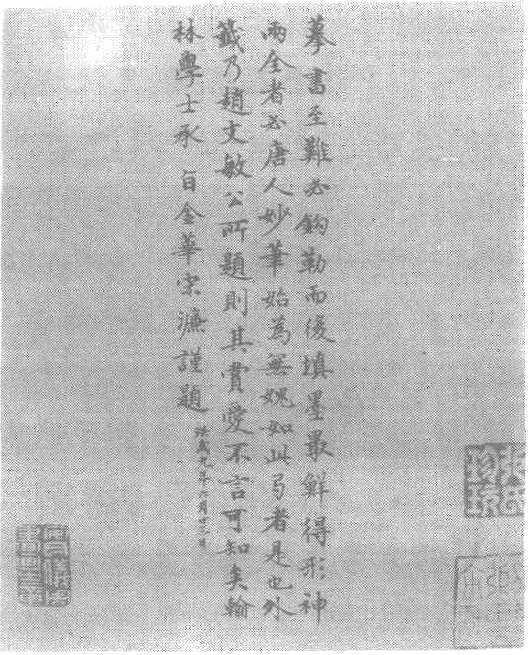 摹書至難必鉤勒而後填墨最鮮得形神
兩全者必唐人妙筆始為無媿如此弓者是也外
籤乃趙文敏公所題則其賞愛不言可知矣翰
林學士承 旨金華宋濂謹題 洪武九年六月廿日